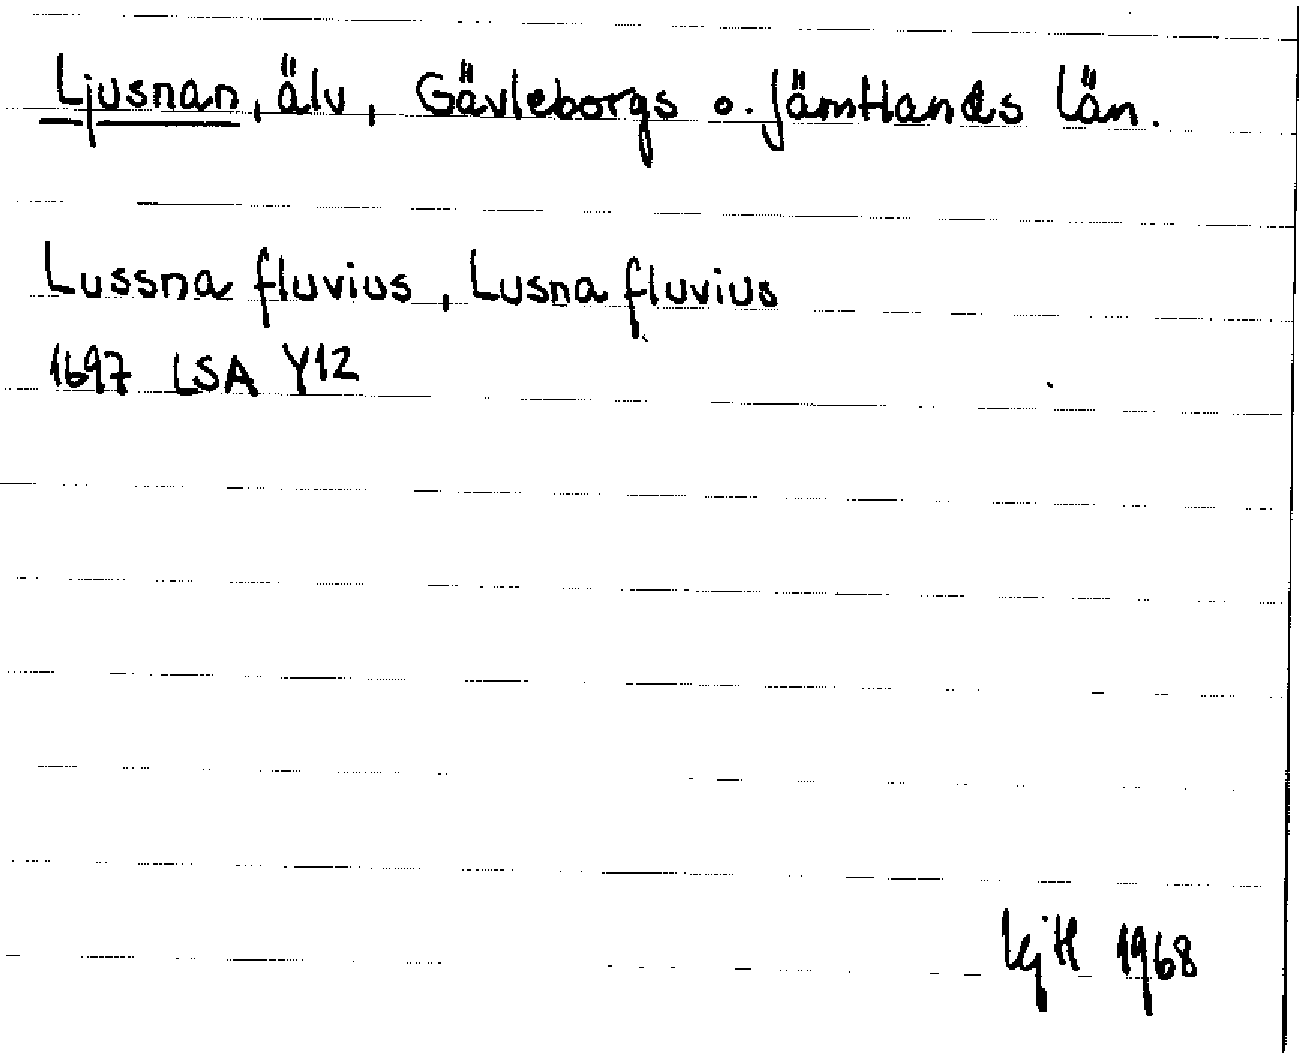 Ljusnan, älv, Gävleborgs o. Jämtlands län.
Lussna fluvius, Lusna fluvius
1697 LSA Y12
1968